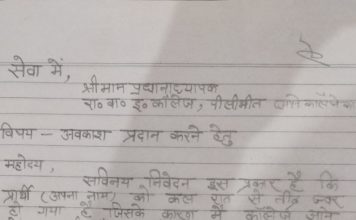 सेवा में,
श्रीमान प्रधानाध्यापक
रा० बा० इ० कॉलेज, पीलीभीत
विषय - अवकाश प्रदान करने हेतु
महोदय,
सविनय निवेदन इस प्रकार है कि
प्रार्थी (अपना नाम) को कल रात से तीव्र ज्वर
हो गया है जिसके कारण में कॉलेज आने